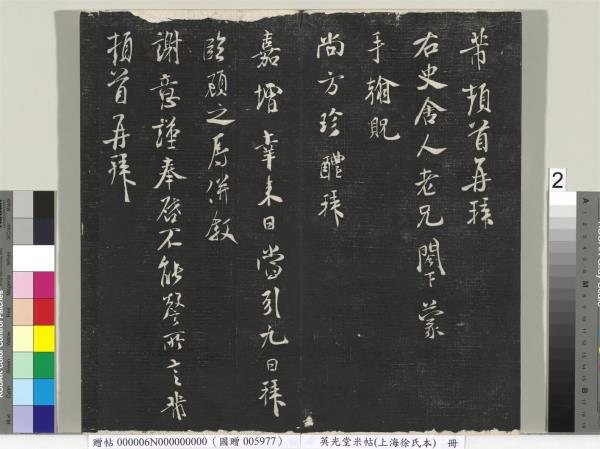 芾頓首再拜
右史舍人老兄閣下蒙
手翰貺
尚方珍醴拜
嘉增幸来日當引九日拜
臨顧之辱併敘
謝意謹奉啓不能罄所言芾
頓首再拜
2
KODAK Color Control Patches
贈帖 000006N000000000 (國贈 005977)　英光堂米帖(上海徐氏本)　冊